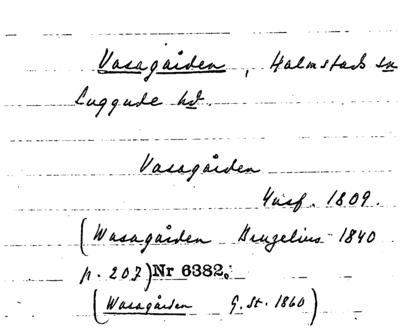 Vasagården, Halmstads sn
Luggude hd.
Vasagården
Husf. 1809.
(Wasagården Bruzelius 1840
p. 207) Nr 6382.
(Wasagården G. St. 1860)